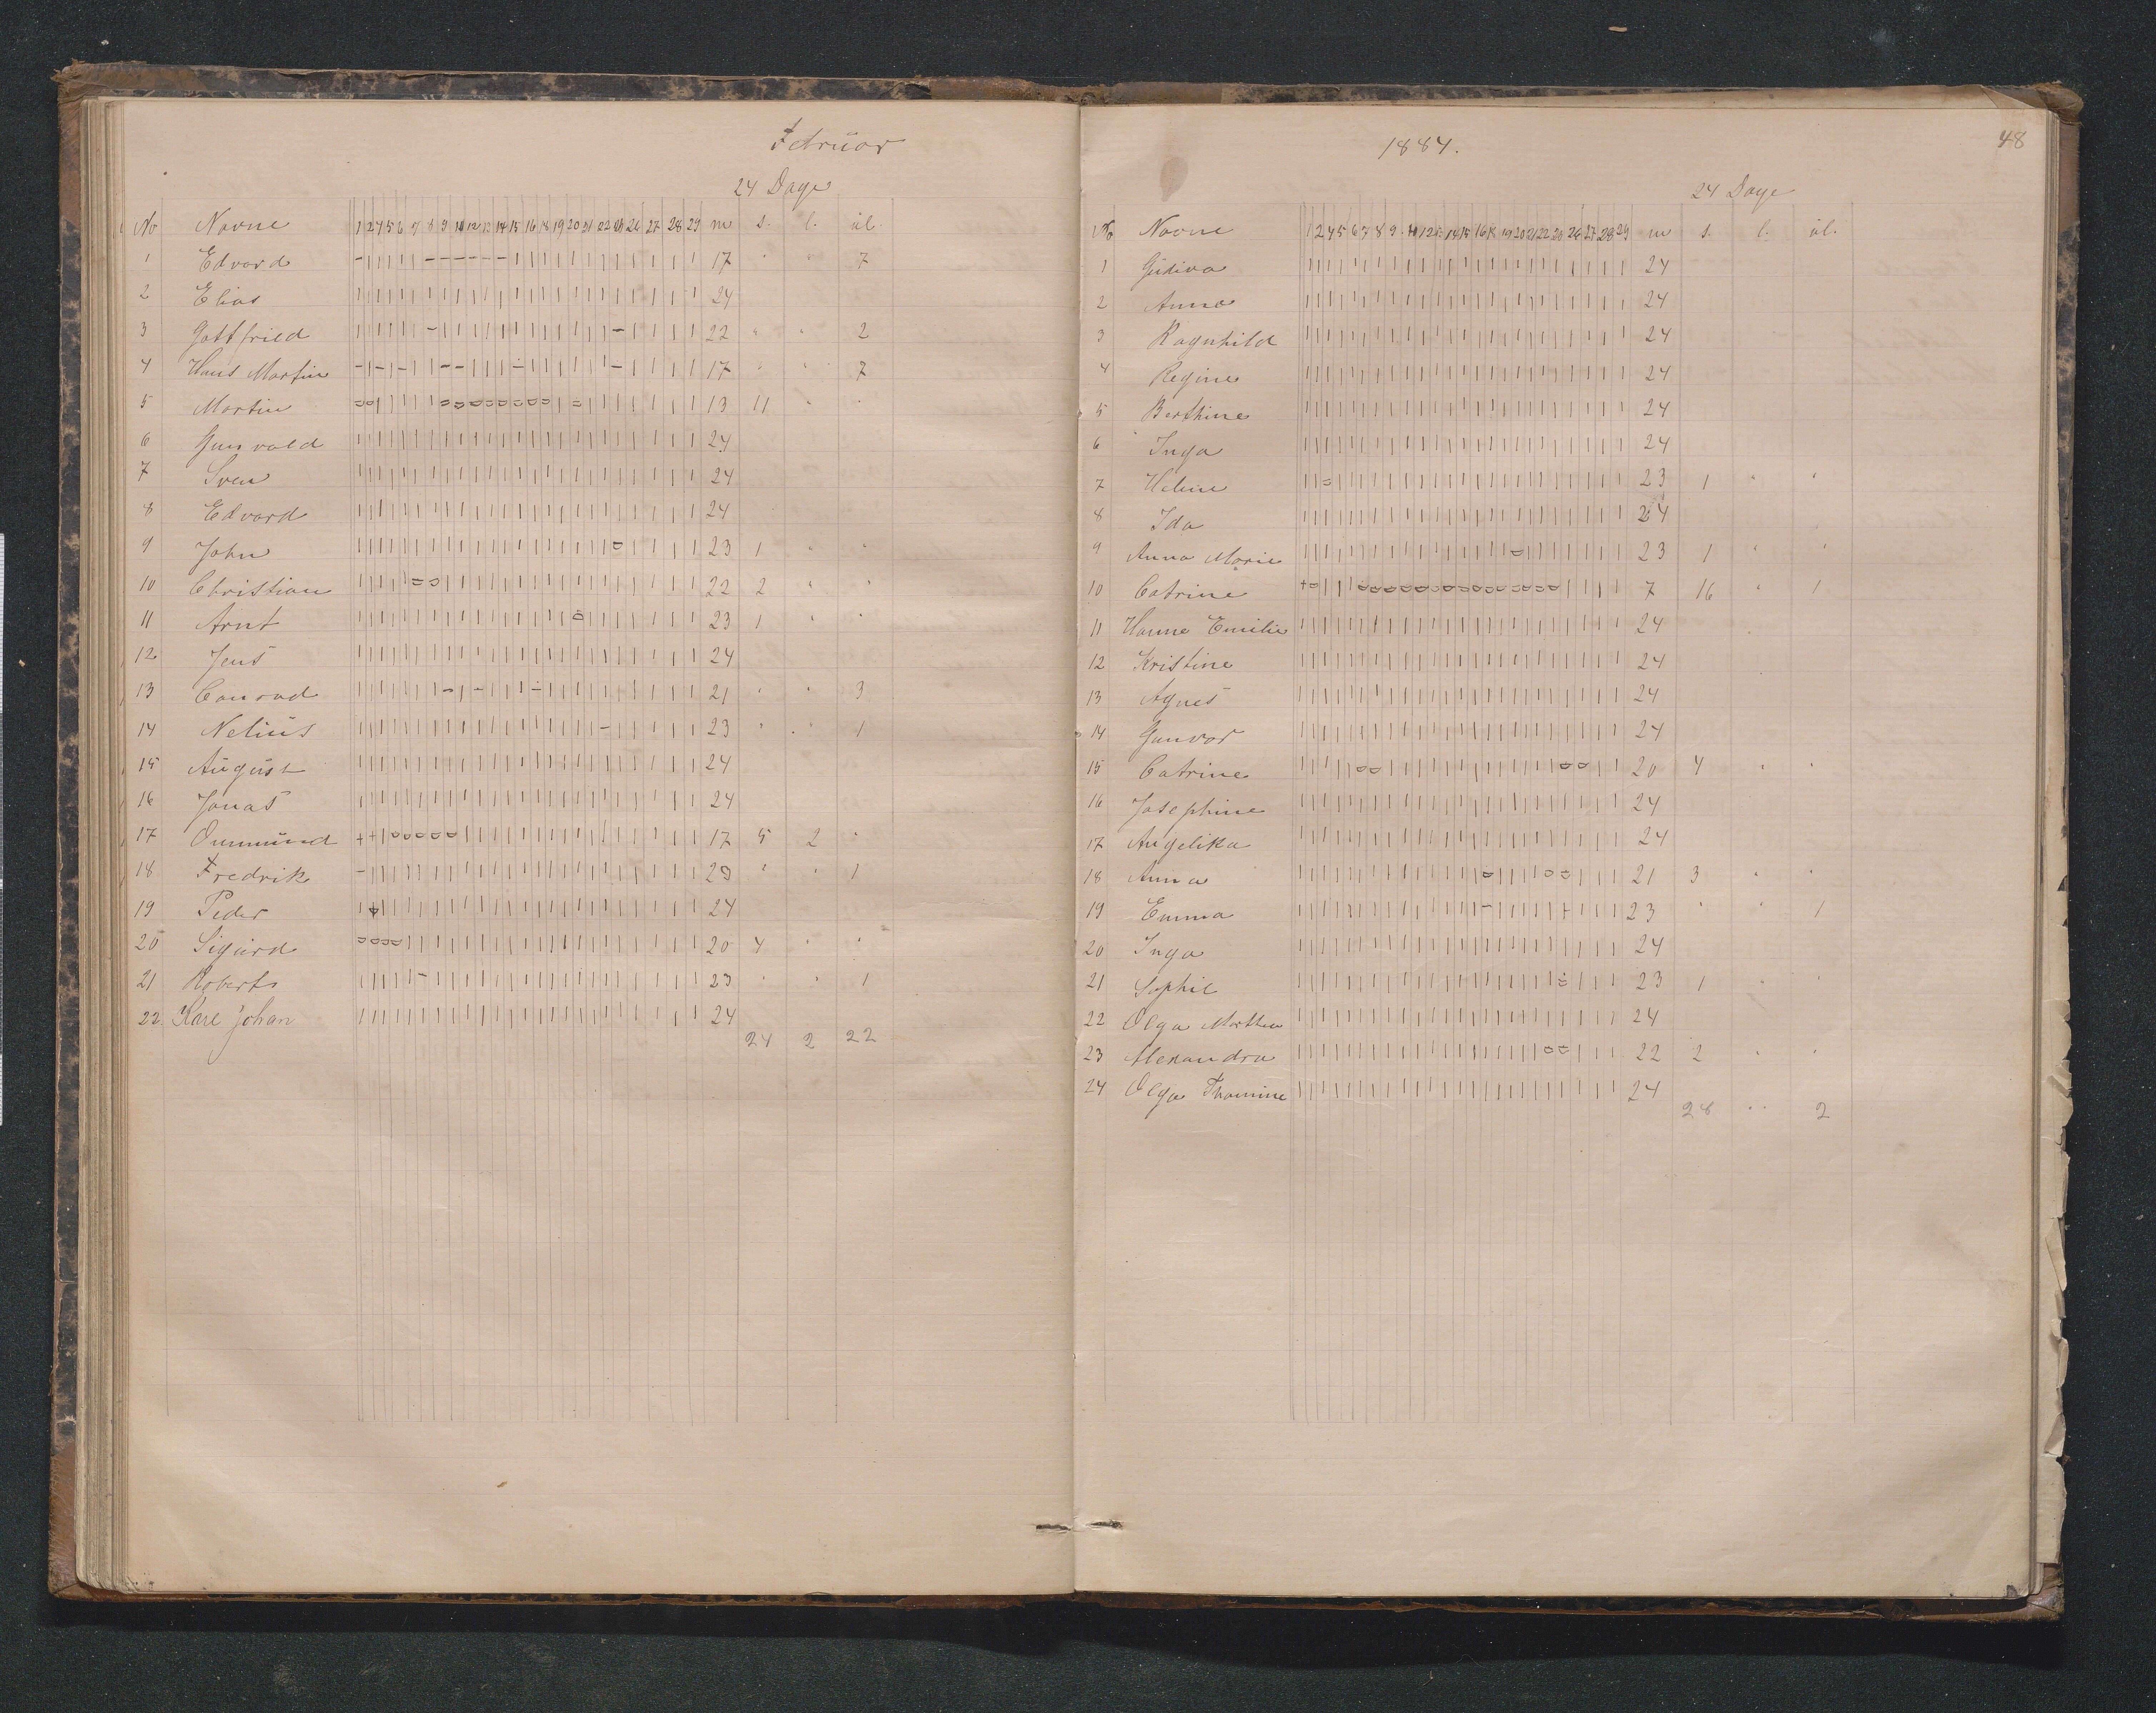 Februar
24 Dage
No Navne 1 2 4 5 6 7 8 9 11 12 13 14 15 16 18 19 20 21 22 23 26 27 28 29 m s. l. ul.
1 Edvard 17 " " 7
2 Elias 24
3 Gottfried 22 " " 2
4 Hans Martin 17 " " 7
5 Martin 13 11 " "
6 Gunvald 24
7 Sven 24
8 Edvard 24
9 John 23 1 " "
10 Christian 22 2 " "
11 Arnt 23 1 " "
12 Jens 24
13 Conrad 21 " " 3
14 Nelius 23 " " 1
15 August 24
16 Jonas 24
17 Ommund 17 5 2 "
18 Fredrik 23 " " 1
19 Peder 24
20 Sigurd 20 4 " "
21 Robert 23 " " 1
22 Karl Johan 24
24 2 22
1884.
48
24 Dage
No Navne 1 2 4 5 6 7 8 9 11 12 13 14 15 16 18 19 20 21 22 23 26 27 28 29 m s. l. ul.
1 Gudiva 24
2 Anna 24
3 Ragnhild 24
4 Regine 24
5 Berthine 24
6 Inga 24
7 Heline 23 1 " "
8 Ida 24
9 Anna Marie 23 1 " "
10 Catrine 7 16 " 1
11 Hanna Emilie 24
12 Kristine 24
13 Agnes 24
14 Gunvor 24
15 Catrine 20 4 " "
16 Josephine 24
17 Angelika 24
18 Anna 21 3 " "
19 Emma 23 " " 1
20 Inga 24
21 Sophie 23 1 " "
22 Olga Marthea 24
23 Alexandra 22 2 " "
24 Olga Thomine 24
28 " " 2